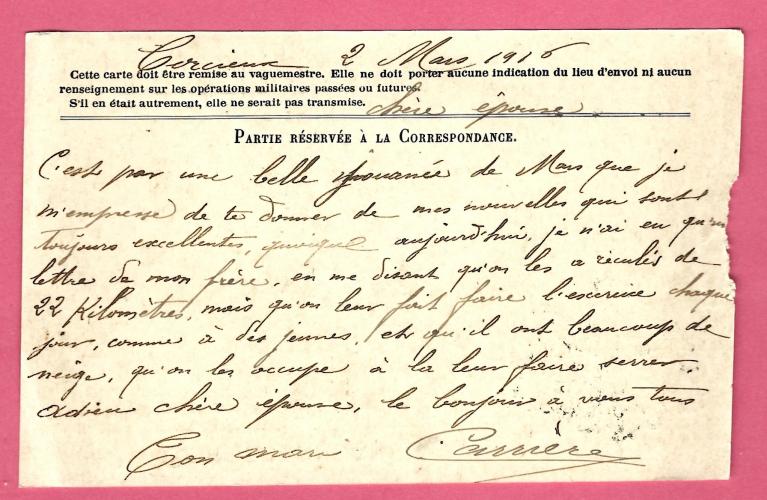 Corcieux 2 Mars 1916
Cette carte doit être remise au vaguemestre. Elle ne doit porter aucune indication du lieu d'envoi ni aucun
renseignement sur les opérations militaires passées ou futures.
S'il en était autrement, elle ne serait pas transmise.
chère épouse
PARTIE RÉSERVÉE À LA CORRESPONDANCE.
C'est par une belle de Mars que je
m'empresse de te donner de mes nouvelles qui sont
toujours excellentes, quoique aujourd'hui, je n'ai eu qu'une
lettre de mon frère, en me disant qu'on les a reculés de
22 Kilomètres, mais qu'on leur fait faire l'escrime chaque
jour, comme à des jeunes, et qu'il ont beaucoup de
neige, qu'on les occupe à la leur faire serrer.
Adieu chère épouse, le bonjour à vous tous
Ton mari Carrière